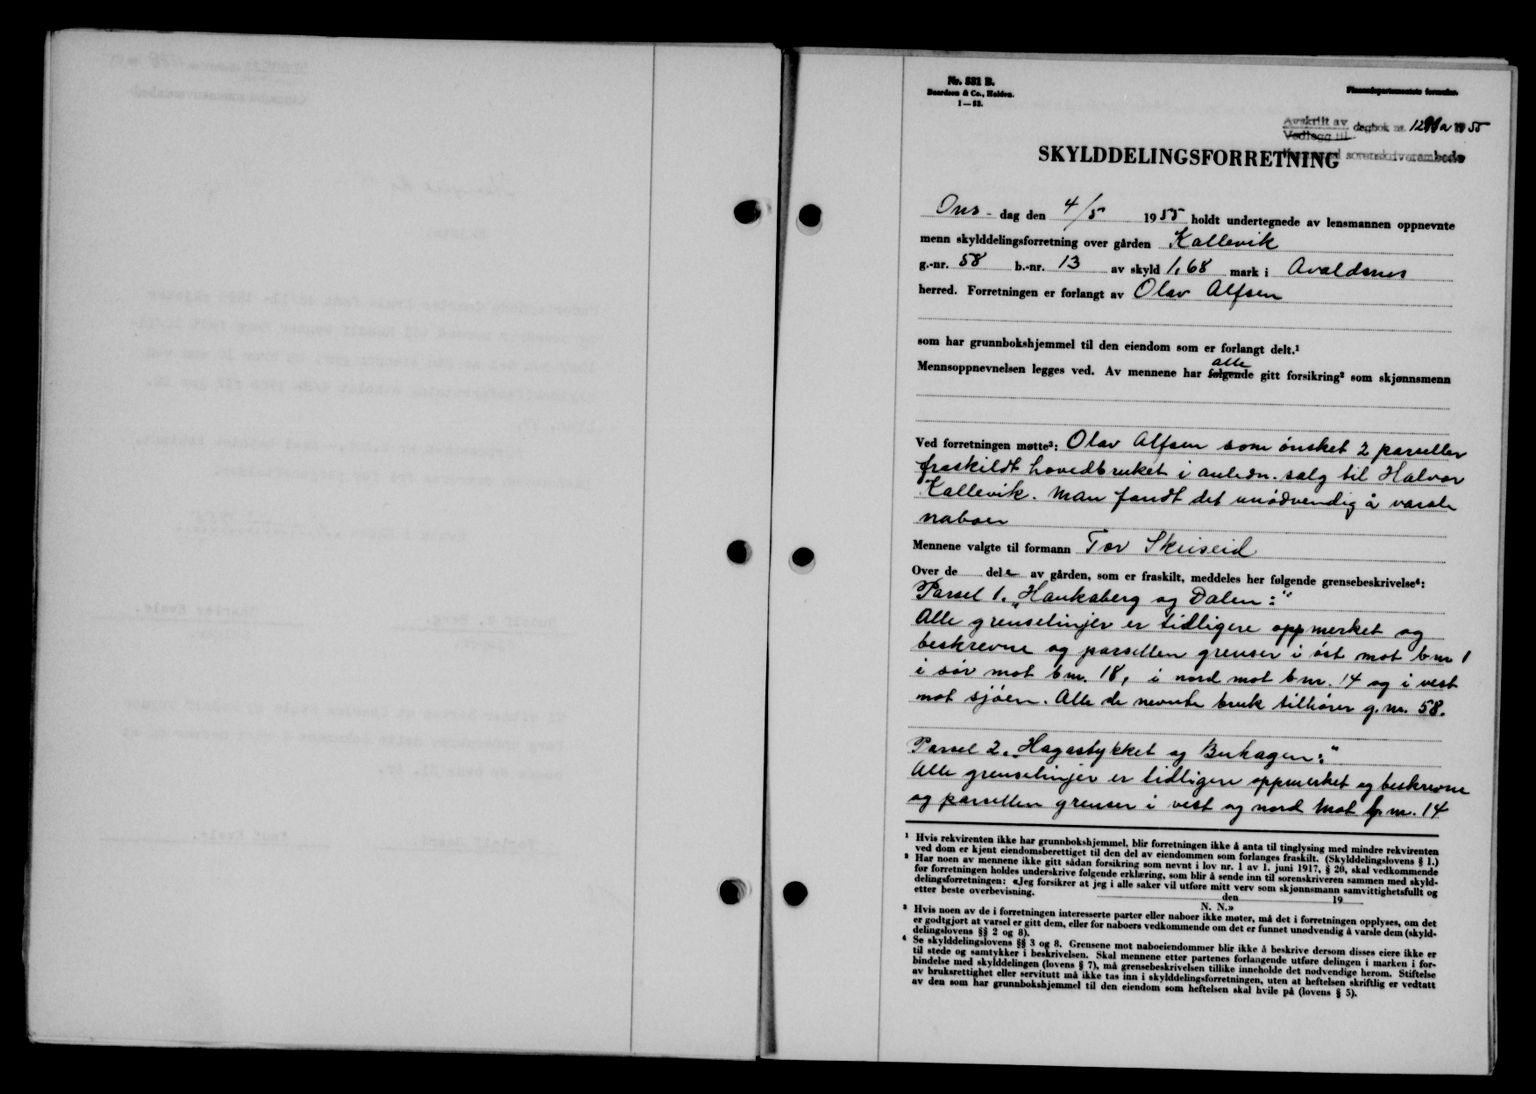 Nr. 531 B.
Baardsen & Co., Halden.
1—53.
Finansdepartementets formular.
Avskrift av
Vedlegg til
dagbok nr. 1955
sorenskriverembede
SKYLDDELINGSFORRETNING
Ons - dag den 4/5 1955 holdt undertegnede av lensmannen oppnevnte
menn skylddelingsforretning over gården Kallevik
g.-nr. 58 b.-nr. 13 av skyld 1,68 mark i Avaldsnes
herred. Forretningen er forlangt av Olav Alfsen
som har grunnbokshjemmel til den eiendom som er forlangt delt.¹
alle
Mennsoppnevnelsen legges ved. Av mennene har følgende gitt forsikring² som skjønnsmenn
Ved forretningen møtte³: Olav Alfsen som ønsket 2 parseller
fraskildt hovedbruket i anledn. salg til Halvor
Kallevik. Man fandt det unødvendig å varsle
naboer
Mennene valgte til formann Tor Skeiseid
Over de dele av gården, som er fraskilt, meddeles her følgende grensebeskrivelse⁴:
Parsel 1. „Hauksberg og Dalen:"
Alle grenselinjer er tidligere oppmerket og
beskrevne og parsellen grenser i øst mot bnr 1
i sør mot bnr. 18, i nord mot bnr. 14 og i vest
mot sjøen. Alle de nevnte bruk tilhører g.nr. 58.
Parsel 2. „Hagastykket og Buhagen:"
Alle grenselinjer er tidligere oppmerket og beskrevne
og parsellen grenser i vest og nord mot b.nr. 14
¹ Hvis rekvirenten ikke har grunnbokshjemmel, blir forretningen ikke å anta til tinglysing med mindre rekvirenten
ved dom er kjent eiendomsberettiget til den del av eiendommen som forlanges fraskilt. (Skylddelingslovens § 1.)
² Har noen av mennene ikke gitt sådan forsikring som nevnt i lov nr. 1 av 1. juni 1917, § 20, skal vedkommende
før forretningen holdes underskrive følgende erklæring, som blir å sende inn til sorenskriveren sammen med skyld-
delingsforretningen: «Jeg forsikrer at jeg i alle saker vil utføre mitt verv som skjønnsmann samvittighetsfullt og
etter beste overbevisning. den 19
N. N.»
³ Hvis noen av de i forretningen interesserte parter eller naboer ikke møter, må det i forretningen opplyses, om det
er godtgjort at varsel er gitt dem, eller for naboers vedkommende om det er funnet unødvendig å varsle dem (skyld-
delingslovens §§ 2 og 8).
⁴ Se skylddelingslovens §§ 3 og 8. Grensene mot naboeiendommer blir ikke å beskrive dersom disses eiere ikke er
til stede og samtykker i beskrivelsen. Skal mennene etter partenes forlangende utføre delingen i marken i for-
bindelse med skylddelingen (lovens § 7), må grensebeskrivelsen tillike inneholde det nødvendige herom. Stiftelse
av bruksrettighet eller servitutt må ikke tas inn i skylddelingsforretningen, uten at heftelsen skriftlig er vedtatt
av den som har grunnbokshjemmel til den eiendom som heftelsen skal hvile på (lovens § 5).